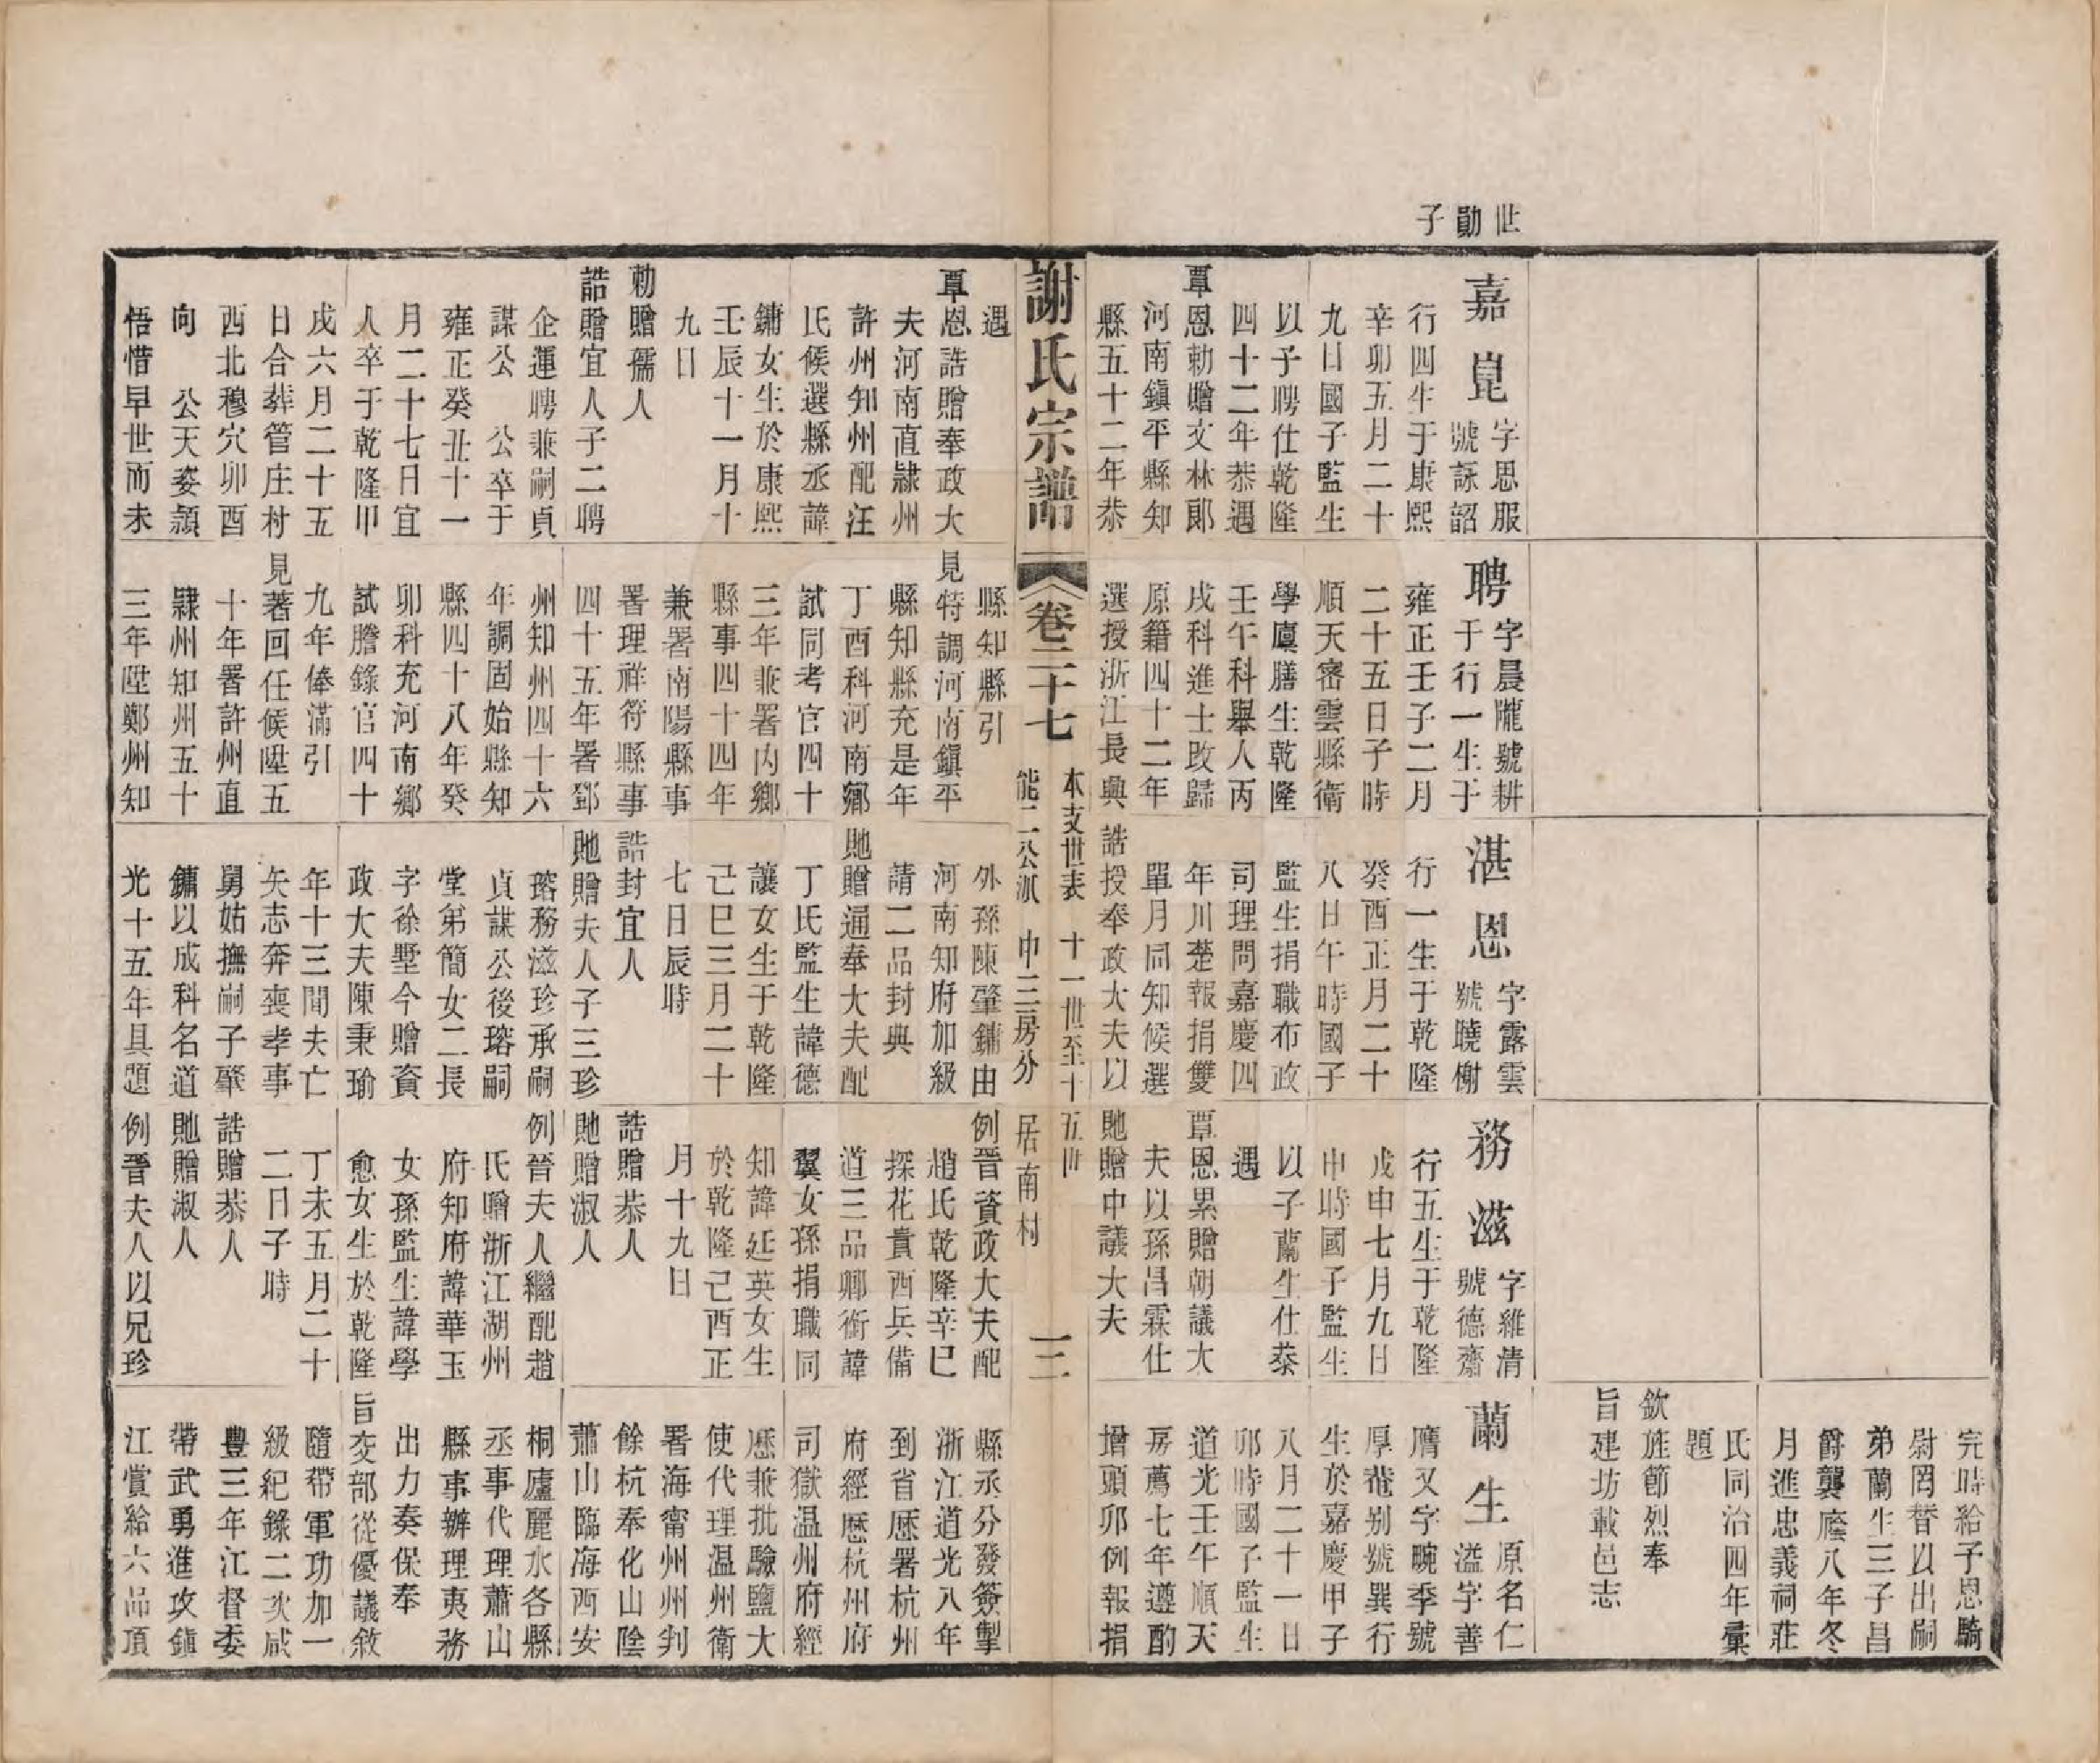 世勛子
嘉崑 字思服
號詠韶
行四生于康熙
辛卯五月二十
九日國子監生
以子聘仕乾隆
四十二年恭遇
覃恩勅贈文林郎
河南鎮平縣知
縣五十二年恭
遇
覃恩誥贈奉政大
夫河南直隸州
許州知州配汪
氏候選縣丞諱
鏞女生於康熙
壬辰十一月十
九日
勅贈孺人
誥贈宜人子二聘
企運聘兼嗣貞
謀公 公卒于
雍正癸丑十一
月二十七日宜
人卒于乾隆甲
戌六月二十五
日合葬管庄村
西北穆穴卯酉
向 公天姿穎
悟惜早世而未
聘 字晨隴號耕
于行一生于
雍正壬子二月
二十五日子時
順天密雲縣衛
學廩膳生乾隆
壬午科舉人丙
戌科進士改歸
原籍四十二年
選授浙江長興
縣知縣引
見特調河南鎮平
縣知縣充是年
丁酉科河南鄉
試同考官四十
三年兼署內鄉
縣事四十四年
兼署南陽縣事
署理祥符縣事
四十五年署鄧
州知州四十六
年調固始縣知
縣四十八年癸
卯科充河南鄉
試謄錄官四十
九年俸滿引
見著回任候陞五
十年署許州直
隸州知州五十
三年陞鄭州知
湛恩 字露雲
號曉榭
行一生于乾隆
癸酉正月二十
八日午時國子
監生捐職布政
司理問嘉慶四
年川楚報捐雙
單月同知候選
誥授奉政大夫以
外孫陳肇鏞由
河南知府加級
請二品封典
貤贈通奉大夫配
丁氏監生諱德
讓女生于乾隆
己巳三月二十
七日辰時
誥封宜人
貤贈夫人子三珍
瑢務滋珍承嗣
貞謀公後瑢嗣
堂弟簡女二長
字徐墅今贈資
政大夫陳秉瑜
年十三間夫亡
矢志奔喪孝事
舅姑撫嗣子肇
鏞以成科名道
光十五年具題
務滋 字維清
號德齋
行五生于乾隆
戊申七月九日
申時國子監生
以子蘭生仕恭
遇
覃恩累贈朝議大
夫以孫昌霖仕
貤贈中議大夫
例晉資政大夫配
趙氏乾隆辛巳
探花貴西兵備
道三品卿銜諱
翼女孫捐職同
知諱延英女生
於乾隆己酉正
月十九日
誥贈恭人
貤贈淑人
例晉夫人繼配趙
氏贈浙江湖州
府知府諱華玉
女孫監生諱學
愈女生於乾隆
丁未五月二十
二日子時
誥贈恭人
貤贈淑人
例晉夫人以兄珍
完時給予恩騎
尉罔替以出嗣
弟蘭生三子昌
爵襲廕八年冬
月進忠義祠莊
氏同治四年彙
題
欽旌節烈奉
旨建坊載邑志
蘭生 原名仁
溢字善
膺又字畹季號
厚菴别號巽行
生於嘉慶甲子
八月二十一日
卯時國子監生
道光壬午順天
房薦七年遵酌
增頭卯例報捐
縣丞分發簽掣
浙江道光八年
到省歷署杭州
府經歷杭州府
司獄温州府經
歷兼批驗鹽大
使代理温州衛
署海甯州州判
餘杭奉化山陰
蕭山臨海西安
桐廬麗水各縣
丞事代理蕭山
縣事辦理夷務
出力奏保奉
旨交部從優議敘
隨帶軍功加一
級紀錄二次咸
豐三年江督委
帶武勇進攻鎮
江賞給六品頂
謝氏宗譜
卷二十七
本支世表 十一世至十五世
能二公派 中三房分 居南村
三